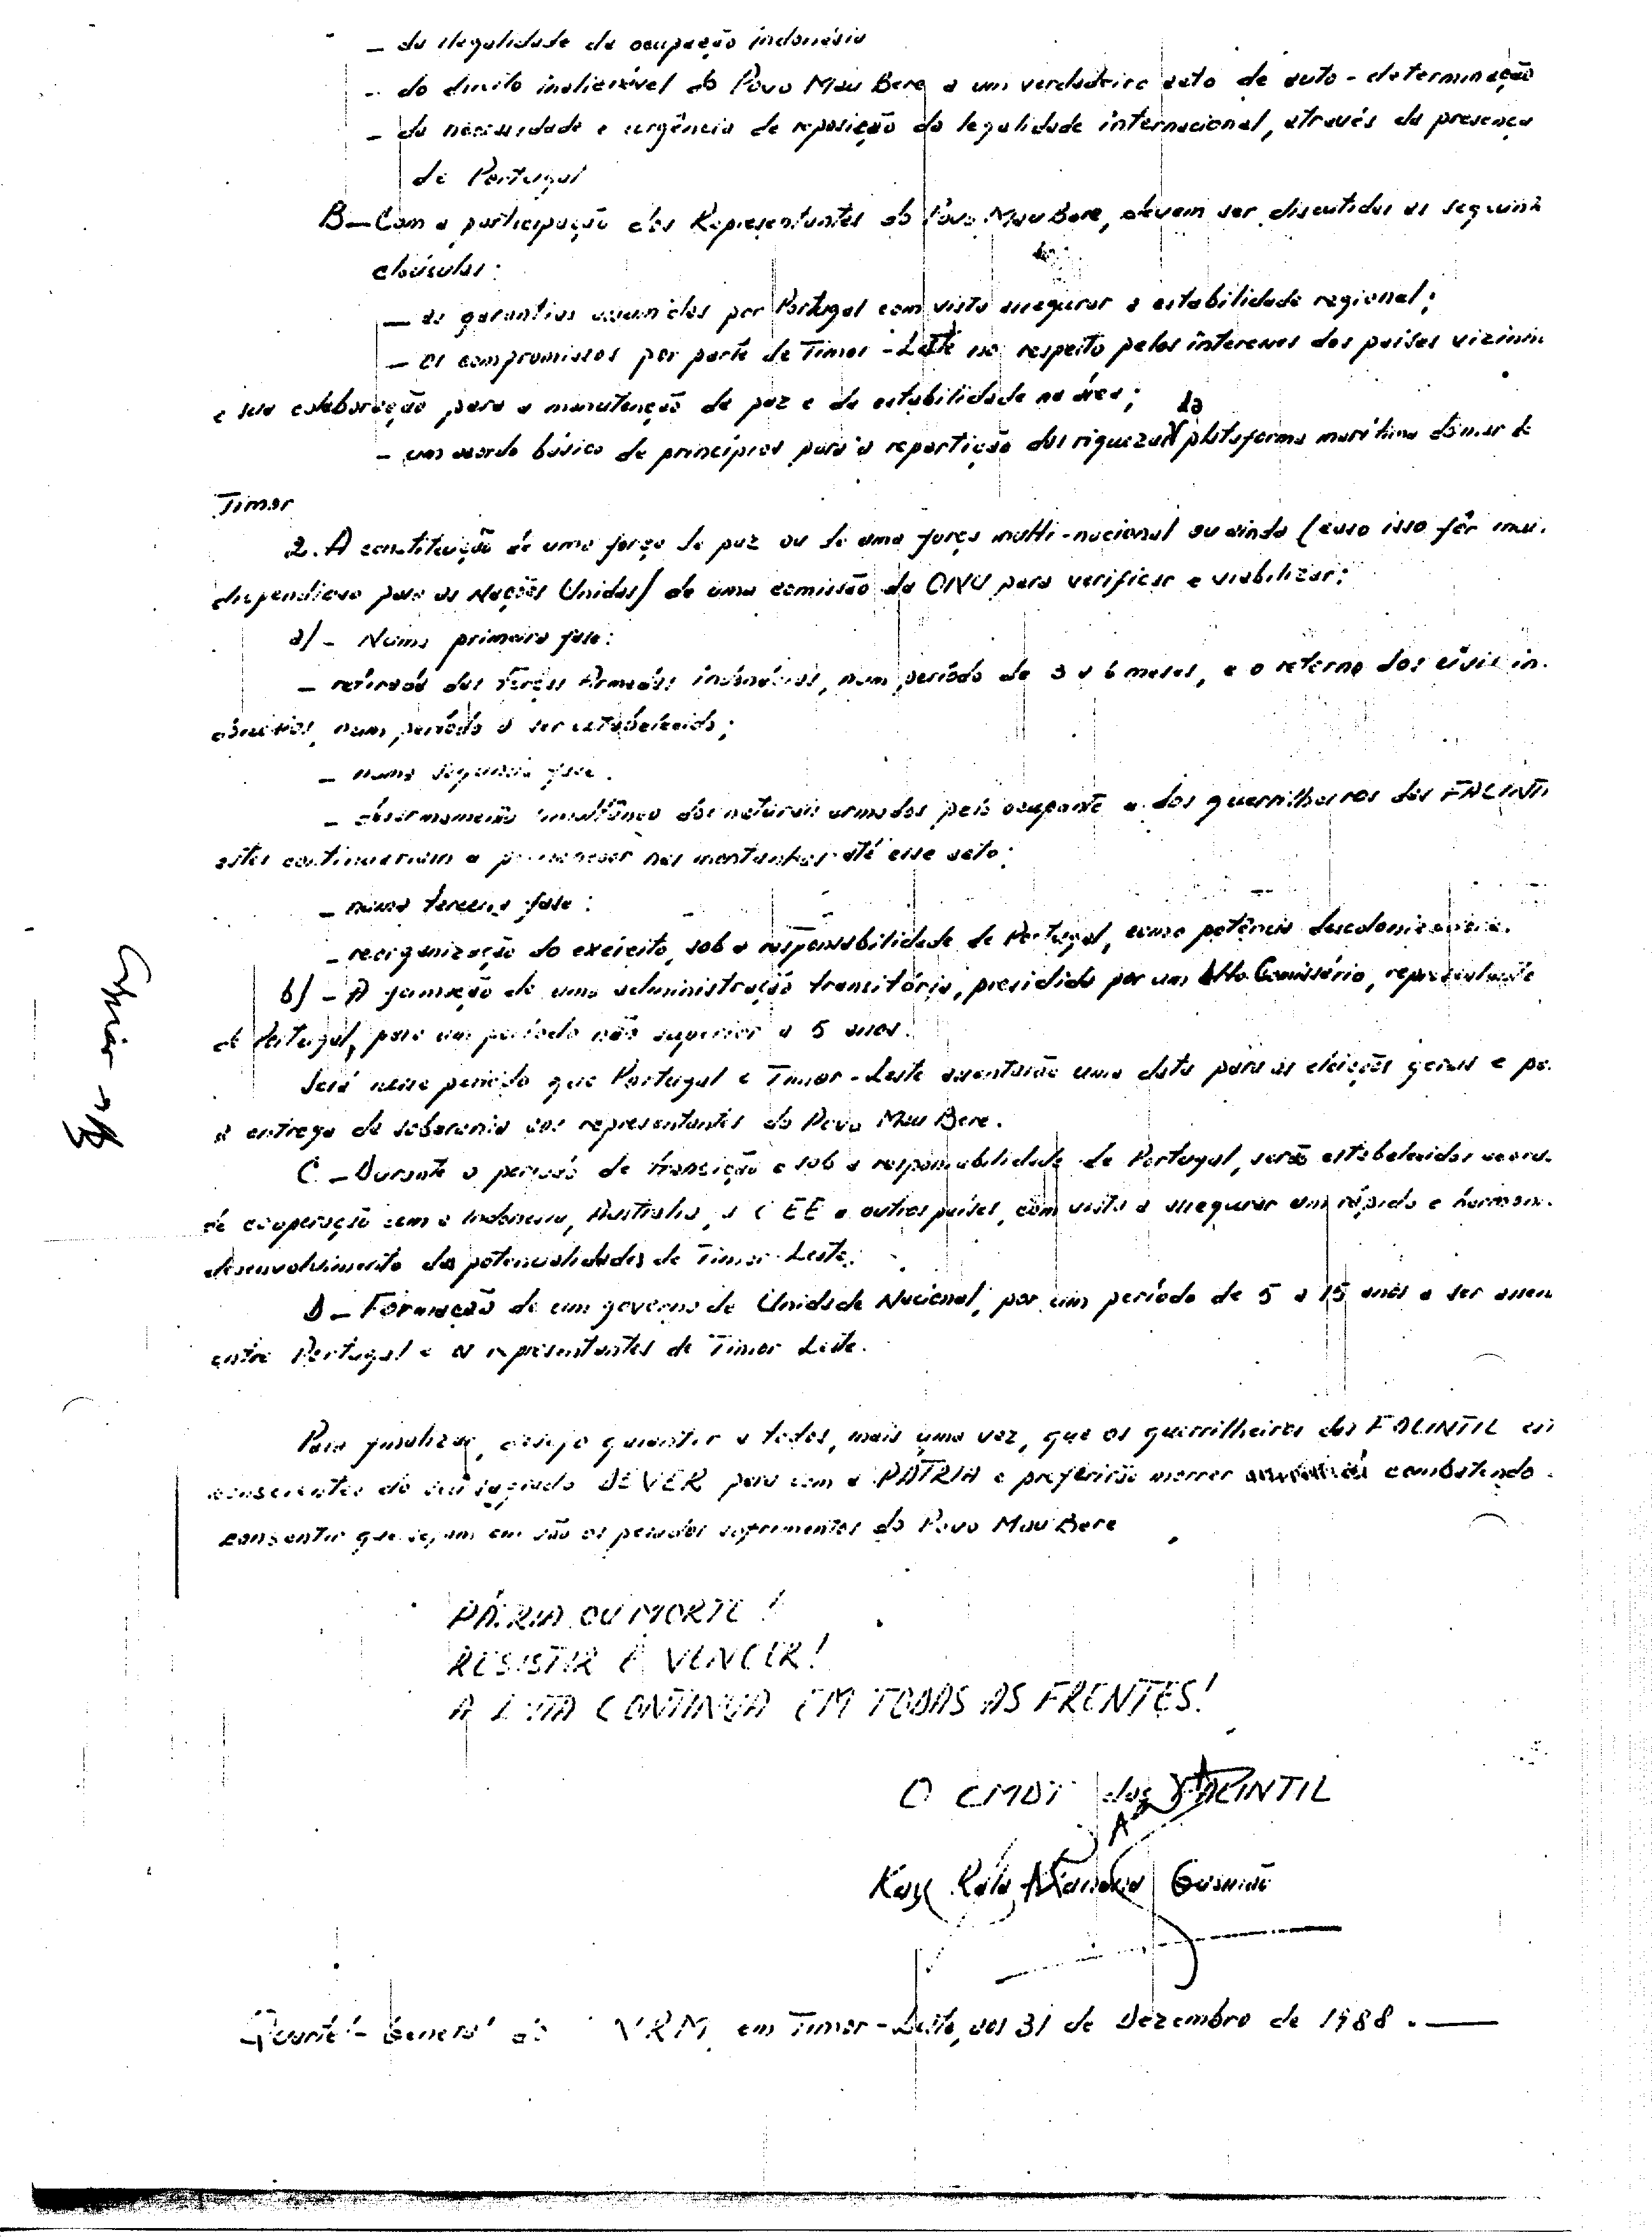 — da ilegalidade da ocupação indonésia
- do direito inalienável do Povo Mau Bere a um verdadeiro acto de auto-determinação
- da necessidade e urgência de reposição da legalidade internacional, através da presença
de Portugal
B— Com a participação dos Representantes do Povo Mau Bere, devem ser discutidas as seguint
cláusulas:
— as garantias assumidas por Portugal com vista assegurar a estabilidade regional;
— os compromissos por parte de Timor-Leste no respeito pelos interesses dos países vizinh
e sua colaboração para a manutenção da paz e da estabilidade na área;
- um acordo básico de princípios para a repartição das riquezas da plataforma marítima do mar de
Timor
2. A constituição de uma força de paz ou de uma força multi-nacional ou ainda (caso isso fôr
dispendioso para as Nações Unidas) de uma comissão da ONU para verificar e viabilizar:
a) - Numa primeira fase:
— retirada das Forças Armadas indonésias, num período de 3 a 6 meses, e o retorno dos civis in-
donésios, num período a ser estabelecido;
— numa segunda fase:
— desarmamento simultâneo dos naturais armados pelo ocupante e dos guerrilheiros das FALINTI
estes continuariam a permanecer nas montanhas até esse acto;
— numa terceira fase:
— reorganização do exército, sob a responsabilidade de Portugal, como potência descolonizadora.
b) - A formação de uma administração transitória, presidida por um Alto Comissário, representante
de Portugal, para um período não superior a 5 anos.
Será nesse período que Portugal e Timor-Leste assentarão uma data para as eleições gerais e pa.
a entrega da soberania aos representantes do Povo Mau Bere.
C — Durante o período de transição e sob a responsabilidade de Portugal, serão estabelecidos acord.
de cooperação com a Indonésia, Austrália, a CEE e outros países, com vista a assegurar um rápido e harmoni.
desenvolvimento das potencialidades de Timor-Leste.
D — Formação de um governo de Unidade Nacional, por um período de 5 a 15 anos a ser assen
entre Portugal e os representantes de Timor Leste.
Para finalizar, desejo garantir a todos, mais uma vez, que os guerrilheiros das FALINTIL es
conscientes do seu sagrado DEVER para com a PÁTRIA e preferirão morrer combatendo
consentir que sejam em vão os pesados sofrimentos do Povo Mau Bere
PÁTRIA OU MORTE !
RESISTIR É VENCER!
A LUTA CONTINUA EM TODAS AS FRENTES!
O CMDT das FALINTIL
Kay Rala Xanana Gusmão
Quartel-General do CNRM, em Timor-Leste, aos 31 de Dezembro de 1988. —